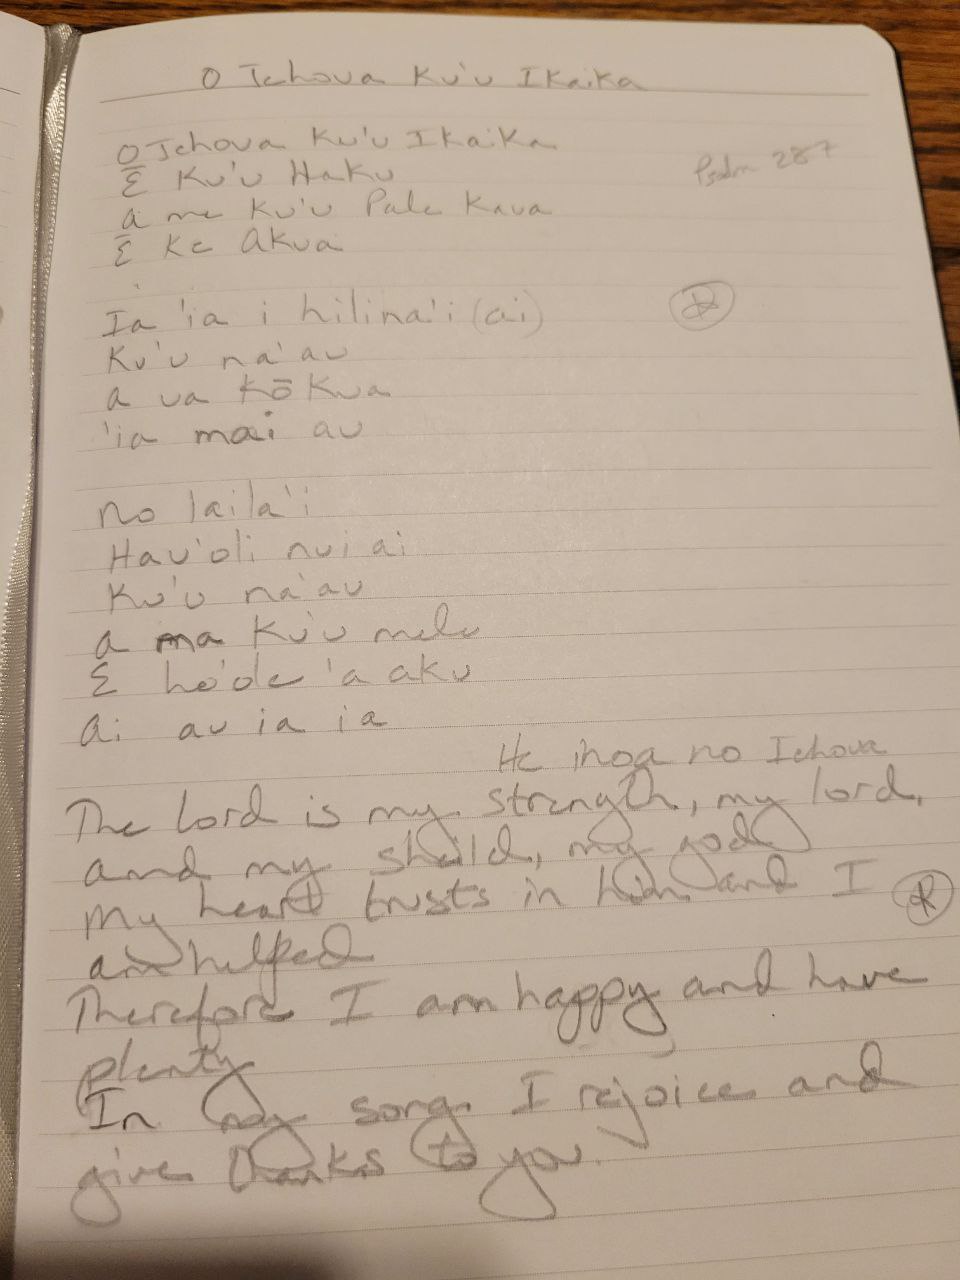 O Iehova Ku'u Ikaika
O Iehova Ku'u Ikaika
Psalm 28:7
E Ku'u Haku
a me Ku'u Pale Kaua
E Ke Akua
Ia 'ia i hilina'i (ai)
Ku'u na'au
a ua Kōkua
'ia mai au
No laila'i
Hau'oli nui ai
Ku'u na'au
a ma Ku'u mele
E ho'ole 'a aku
Ai au ia ia
He inoa no Iehova
The Lord is my strength, my lord,
and my sheild, my god
My heart trusts in him and I
am helped
Therefore I am happy and have
plenty
In my song I rejoice and
give thanks to you.